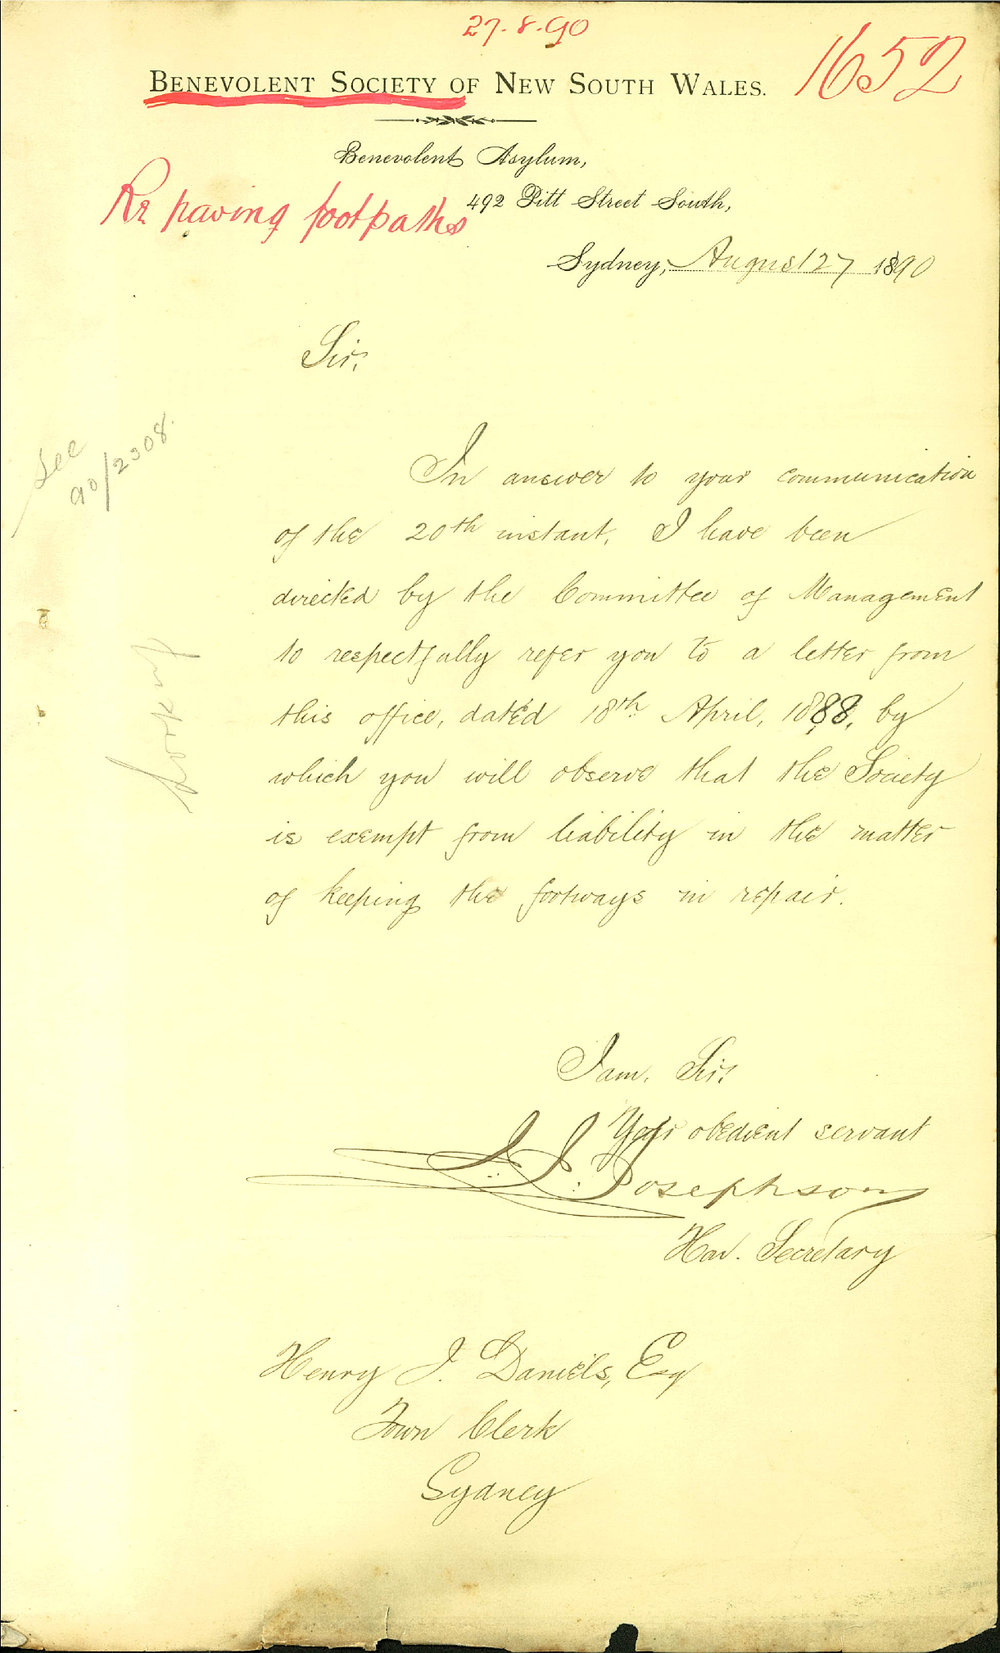 27.8.90
1652
BENEVOLENT SOCIETY OF NEW SOUTH WALES.
Benevolent Asylum,
492 Pitt Street South,
Re paving footpaths
Sydney, August 27 1890
Sir,
See
90/2308.
In answer to your communication
of the 20th instant, I have been
directed by the Committee of Management
to respectfully refer you to a letter from
this office, dated 18th April, 1888, by
which you will observe that the Society
is exempt from liability in the matter
of keeping the footways in repair.
I am, Sir,
Your obedient servant
J. J. Josephson
Hon. Secretary
Henry J. Daniels, Esq
Town Clerk
Sydney